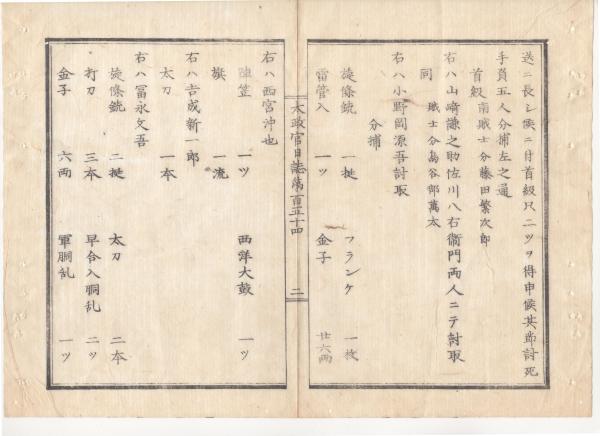 送ニ長シ候ニ付首級只二ツヲ得申候其節討死
手負五人分捕左之通
首級 南賊士分藤田繁次郎
同 賊士分島谷部萬太
右ハ山崎謙之助佐川八右衛門両人ニテ討取
右ハ小野岡源吾討取
分捕
旋條銃 一挺 フランケ 一枚
雷管入 一ツ 金子 廿六両
太政官日誌第百五十四 二
右ハ西宮沖也
陣笠 一ツ 西洋大鼓 一ツ
旗 一流
右ハ吉成新一郎
太刀 一本
右ハ冨永文吾
旋條銃 二挺 太刀 二本
打刀 三本 早合入胴乱 二ツ
金子 六両 軍胴乱 一ツ